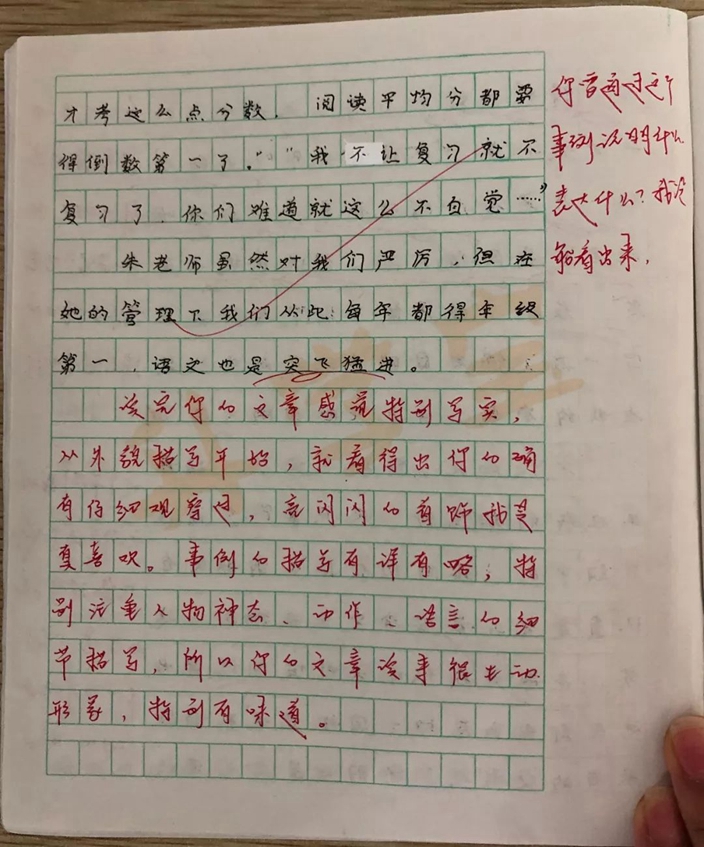 才考这么点分数，阅读平均分都要
得倒数第一了。”“我不让复习就不
复习了，你们难道就这么不自觉……”
朱老师虽然对我们严厉，但在
她的管理下我们从此每年都得年级
第一，语文也是突飞猛进。
读完你的文章感觉特别写实，
从外貌描写开始，就看得出你的确
有仔细观察过，亮闪闪的首饰我是
真喜欢。事例的描写有详有略，特
别注重人物神态、动作、语言的细
节描写，所以你的文章读来很生动
形象，特别有味道。
你音通过这个
事例说明什么
表达什么？我没
能看出来，